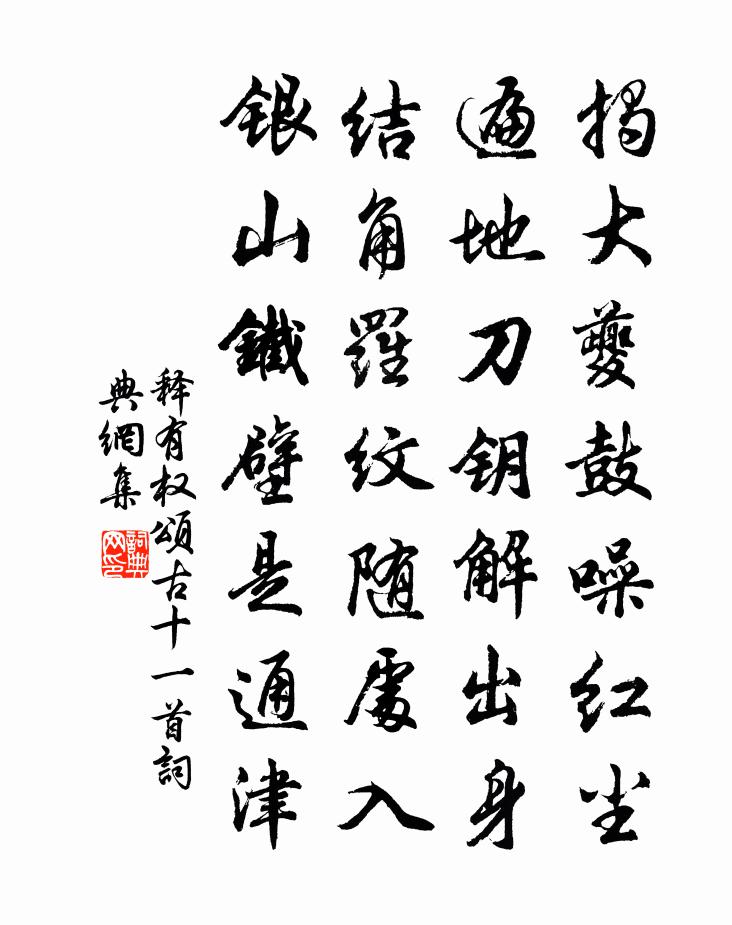 揭大夔鼓噪红尘
遍地刀钥解出身
结角羅紋随處入
銀山鐵壁是通津
释有权颂古十一首詞
典網集
詞典
网印